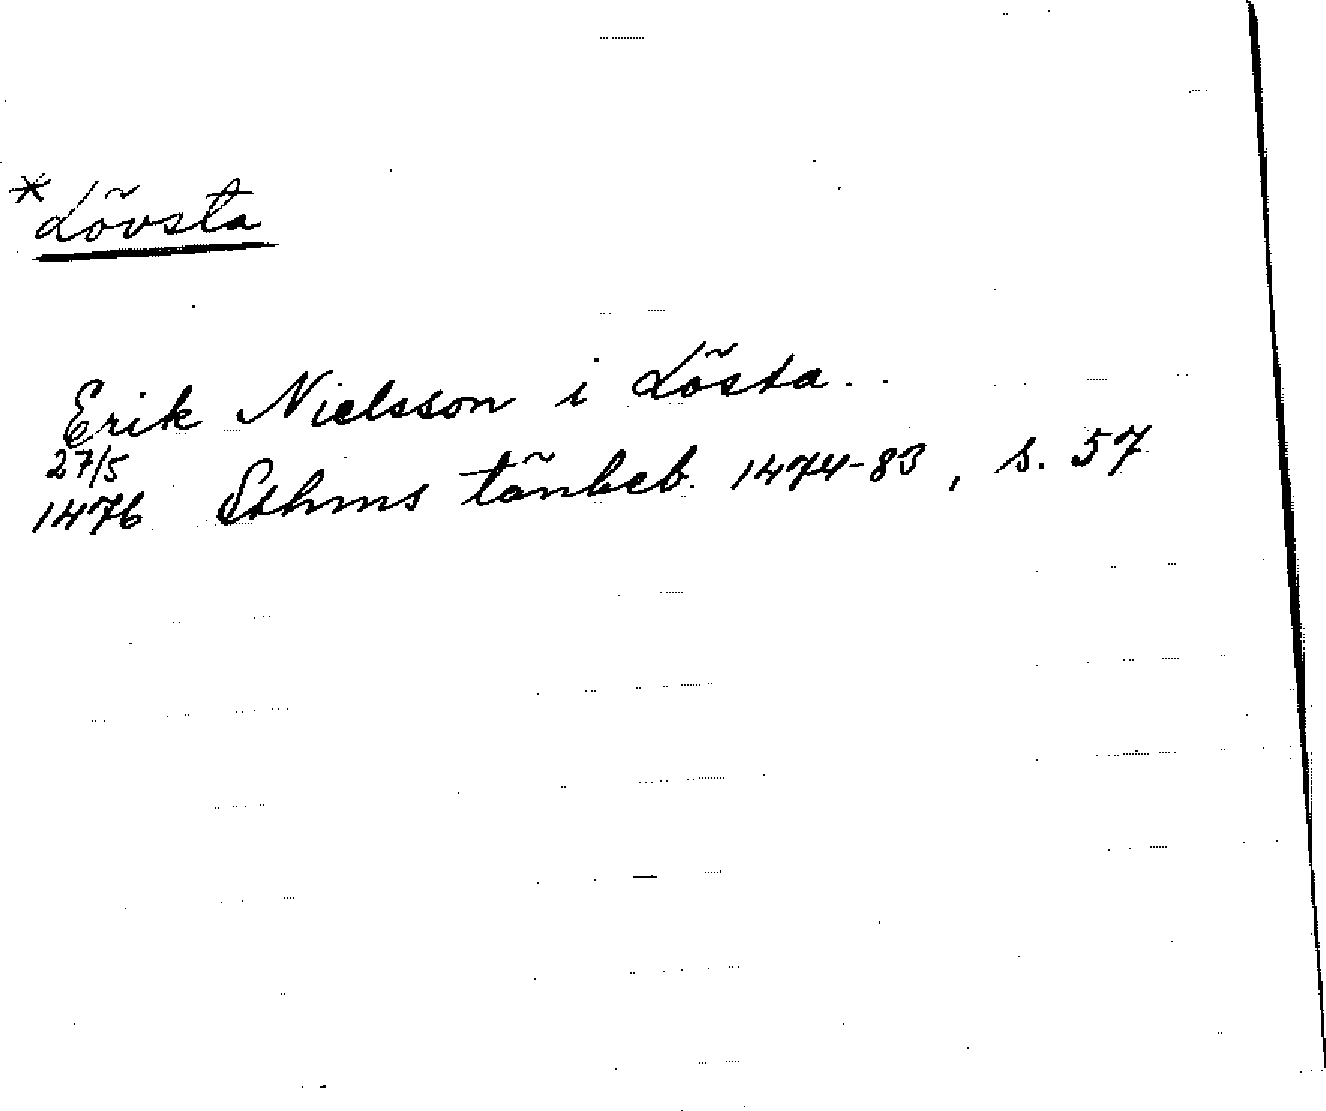 *Lövsta
Erik Nielsson i Lösta.
27/5
1476 Sthms tänkeb. 1474-83, s. 57